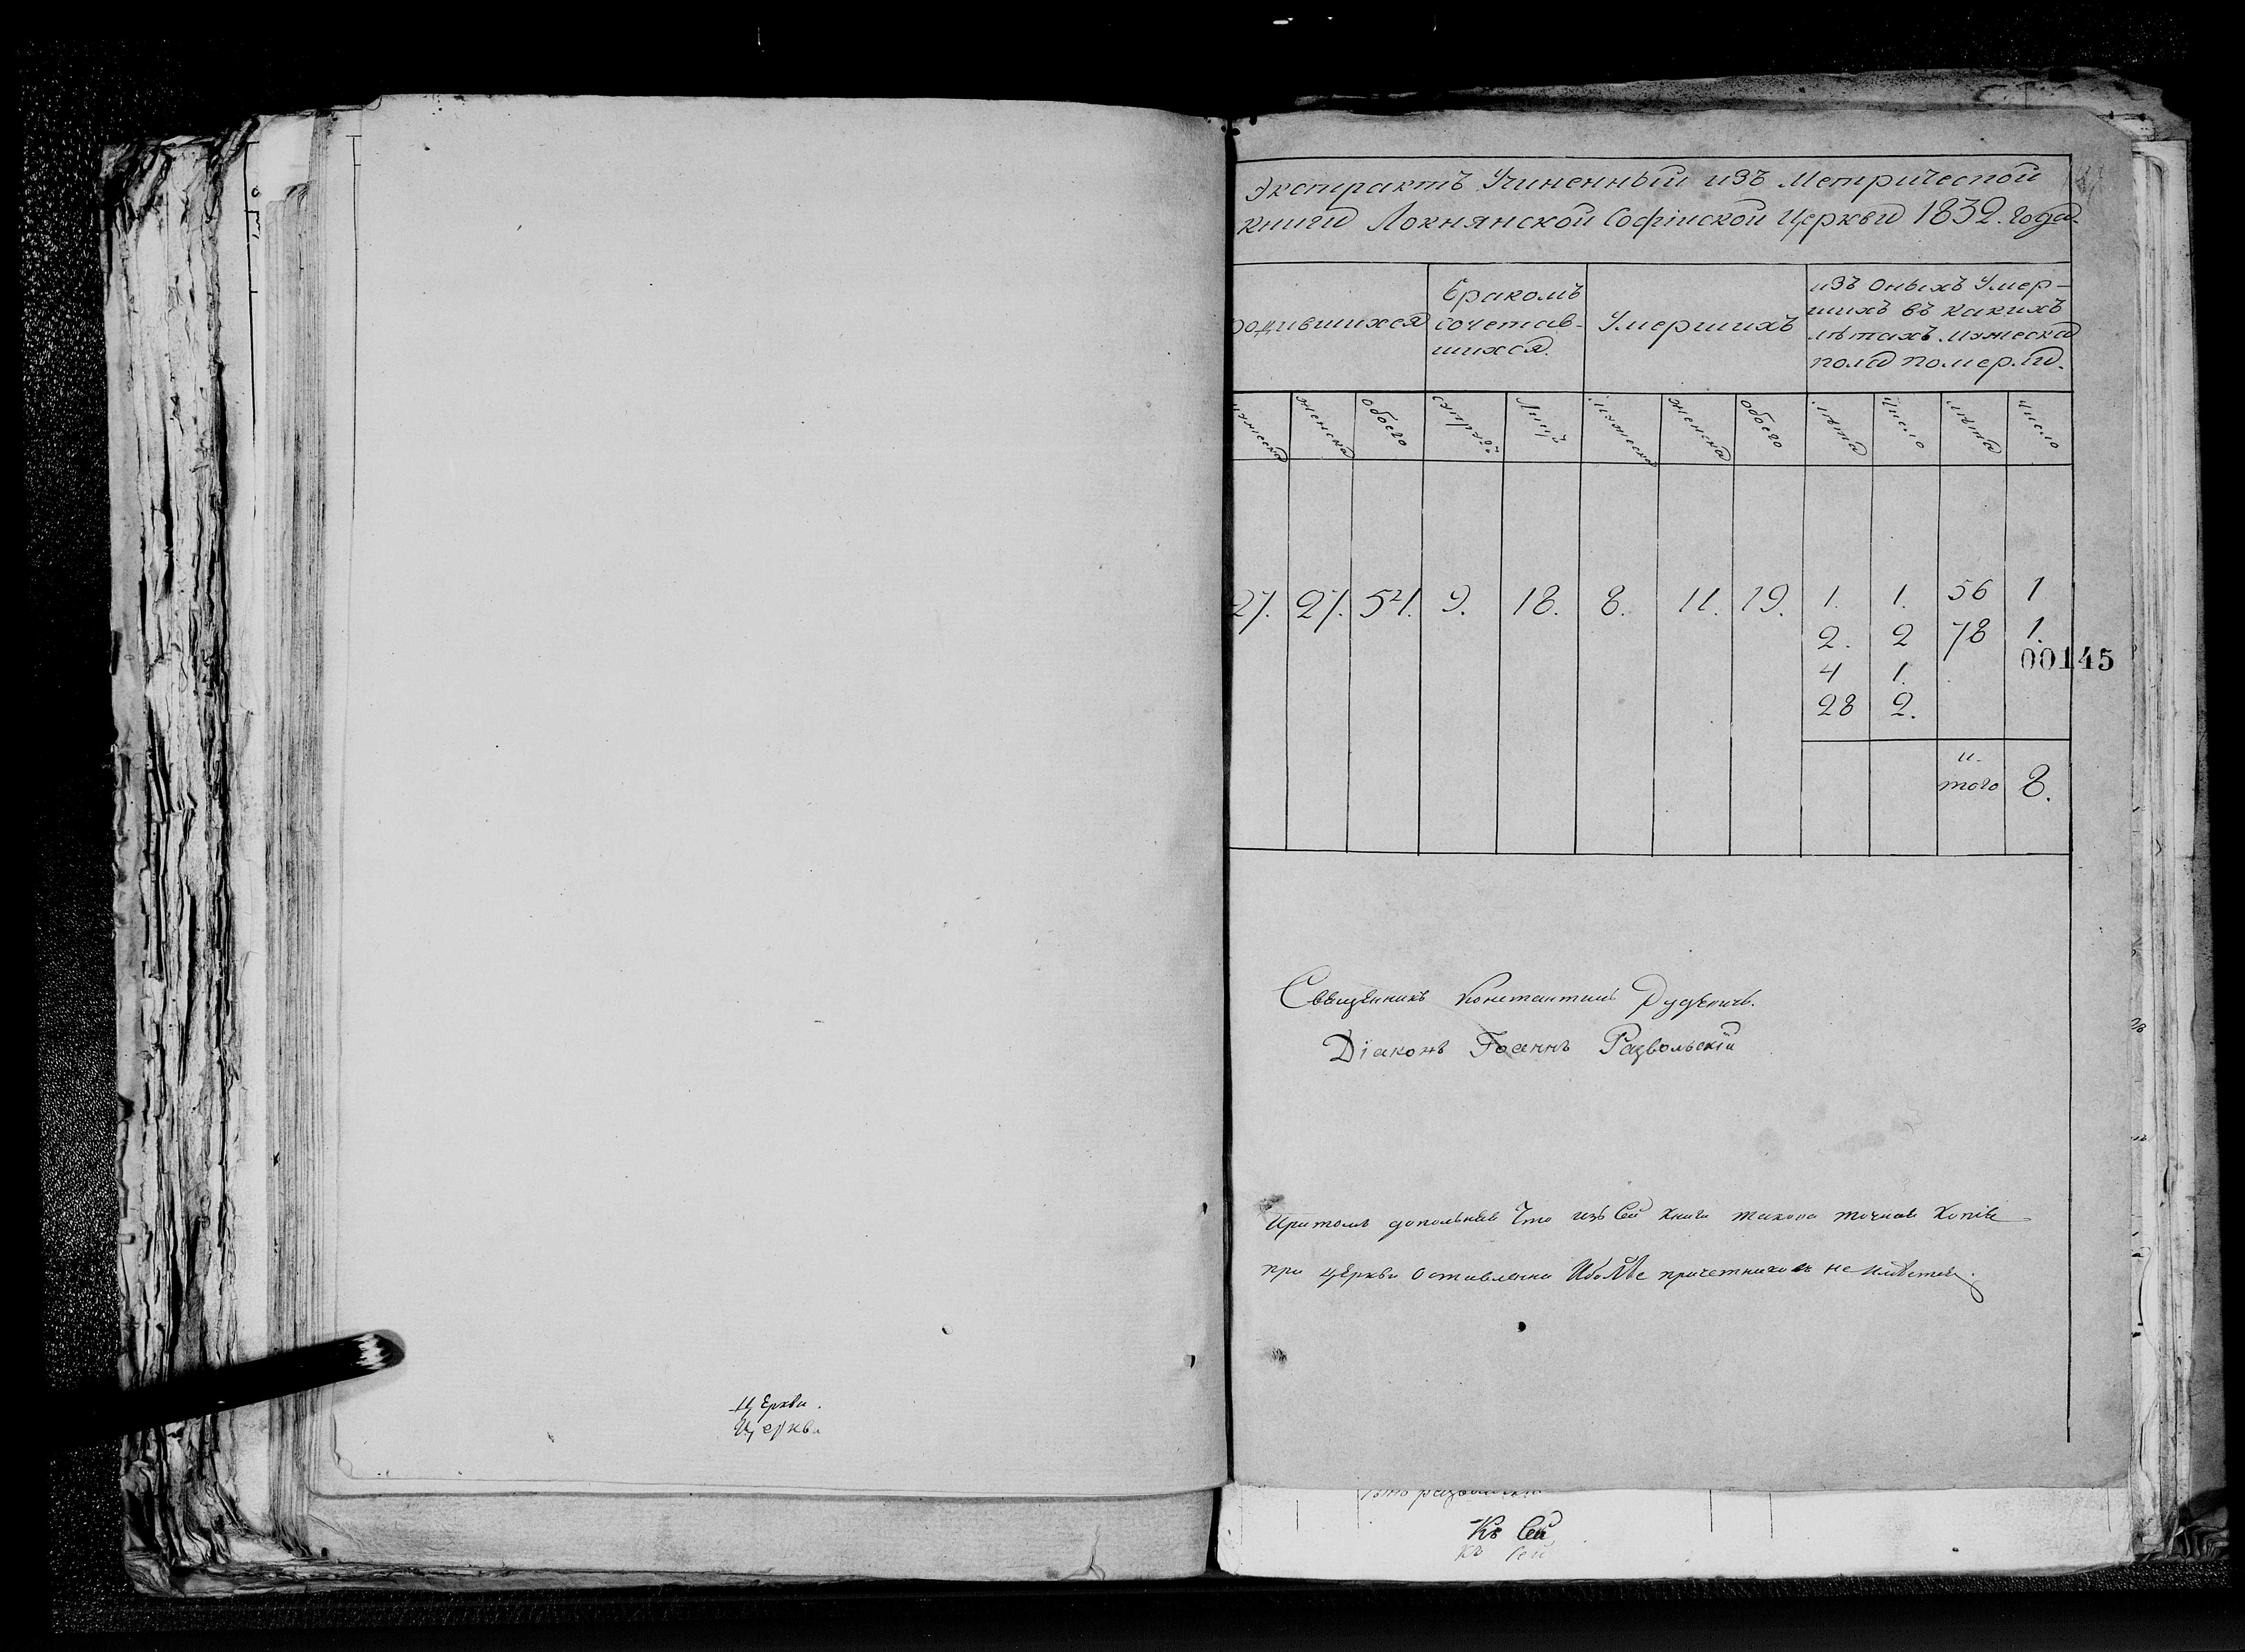 Экстрактъ Учиненный изъ Метрической
книги Локнянской Софійской Церкви 1832. Года.
родившихся
бракомъ
сочетав-
шихся.
Умершихъ
изъ оныхъ Умер-
шихъ въ какихъ
лѣтахъ мужеска
пола померли.
мужеска женска обоего супруж. Лицъ мужеска женска обоего лѣта число лѣта число
27. 27. 54. 9. 18. 8. 11. 19. 1. 1. 56 1
2. 2 78 1.
00145
4 1.
28 2.
и-
того 8.
Священникъ Константинъ
Діаконъ Іоаннъ Развольскій
Притомъ что изъ Сей книги такова точная Копія
при церкви оставленна причетниковъ не имѣется.
церкви.
церкви
Къ Сей
Къ Сей